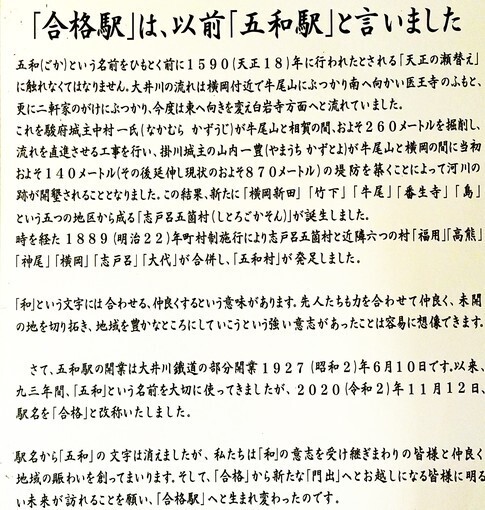 「合格駅」は、以前「五和駅」と言いました
五和(ごか)という名前をひもとく前に1590(天正18)年に行われたとされる「天正の瀬替え」
に触れなくてはなりません。大井川の流れは横岡付近で牛尾山にぶつかり南へ向かい医王寺のふもと、
更に二軒家のがけにぶつかり、今度は東へ向きを変え白岩寺方面へと流れていました。
これを駿府城主中村一氏(なかむら かずうじ)が牛尾山と相賀の間、およそ260メートルを掘削し、
流れを直進させる工事を行い、掛川城主の山内一豊(やまうち かずとよ)が牛尾山と横岡の間に当初
およそ140メートル(その後延伸し現状のおよそ870メートル)の堤防を築くことによって河川の
跡が開墾されることとなりました。この結果、新たに「横岡新田」「竹下」「牛尾」「番生寺」「島」
という五つの地区から成る「志戸呂五箇村(しとろごかそん)」が誕生しました。
時を経た1889(明治22)年町村制施行により志戸呂五箇村と近隣六つの村「福用」「高熊」
「神尾」「横岡」「志戸呂」「大代」が合併し、「五和村」が発足しました。
「和」という文字には合わせる、仲良くするという意味があります。先人たちも力を合わせて仲良く、未開
の地を切り拓き、地域を豊かなところにしていこうという強い意志があったことは容易に想像できます。
さて、五和駅の開業は大井川鐵道の部分開業1927(昭和2)年6月10日です。以来、
九三年間、「五和」という名前を大切に使ってきましたが、2020(令和2)年11月12日、
駅名を「合格」と改称いたしました。
駅名から「五和」の文字は消えましたが、私たちは「和」の意志を受け継ぎまわりの皆様と仲良く
地域の賑わいを創ってまいります。そして、「合格」から新たな「門出」へとお越しになる皆様に明る
い未来が訪れることを願い、「合格駅」へと生まれ変わったのです。